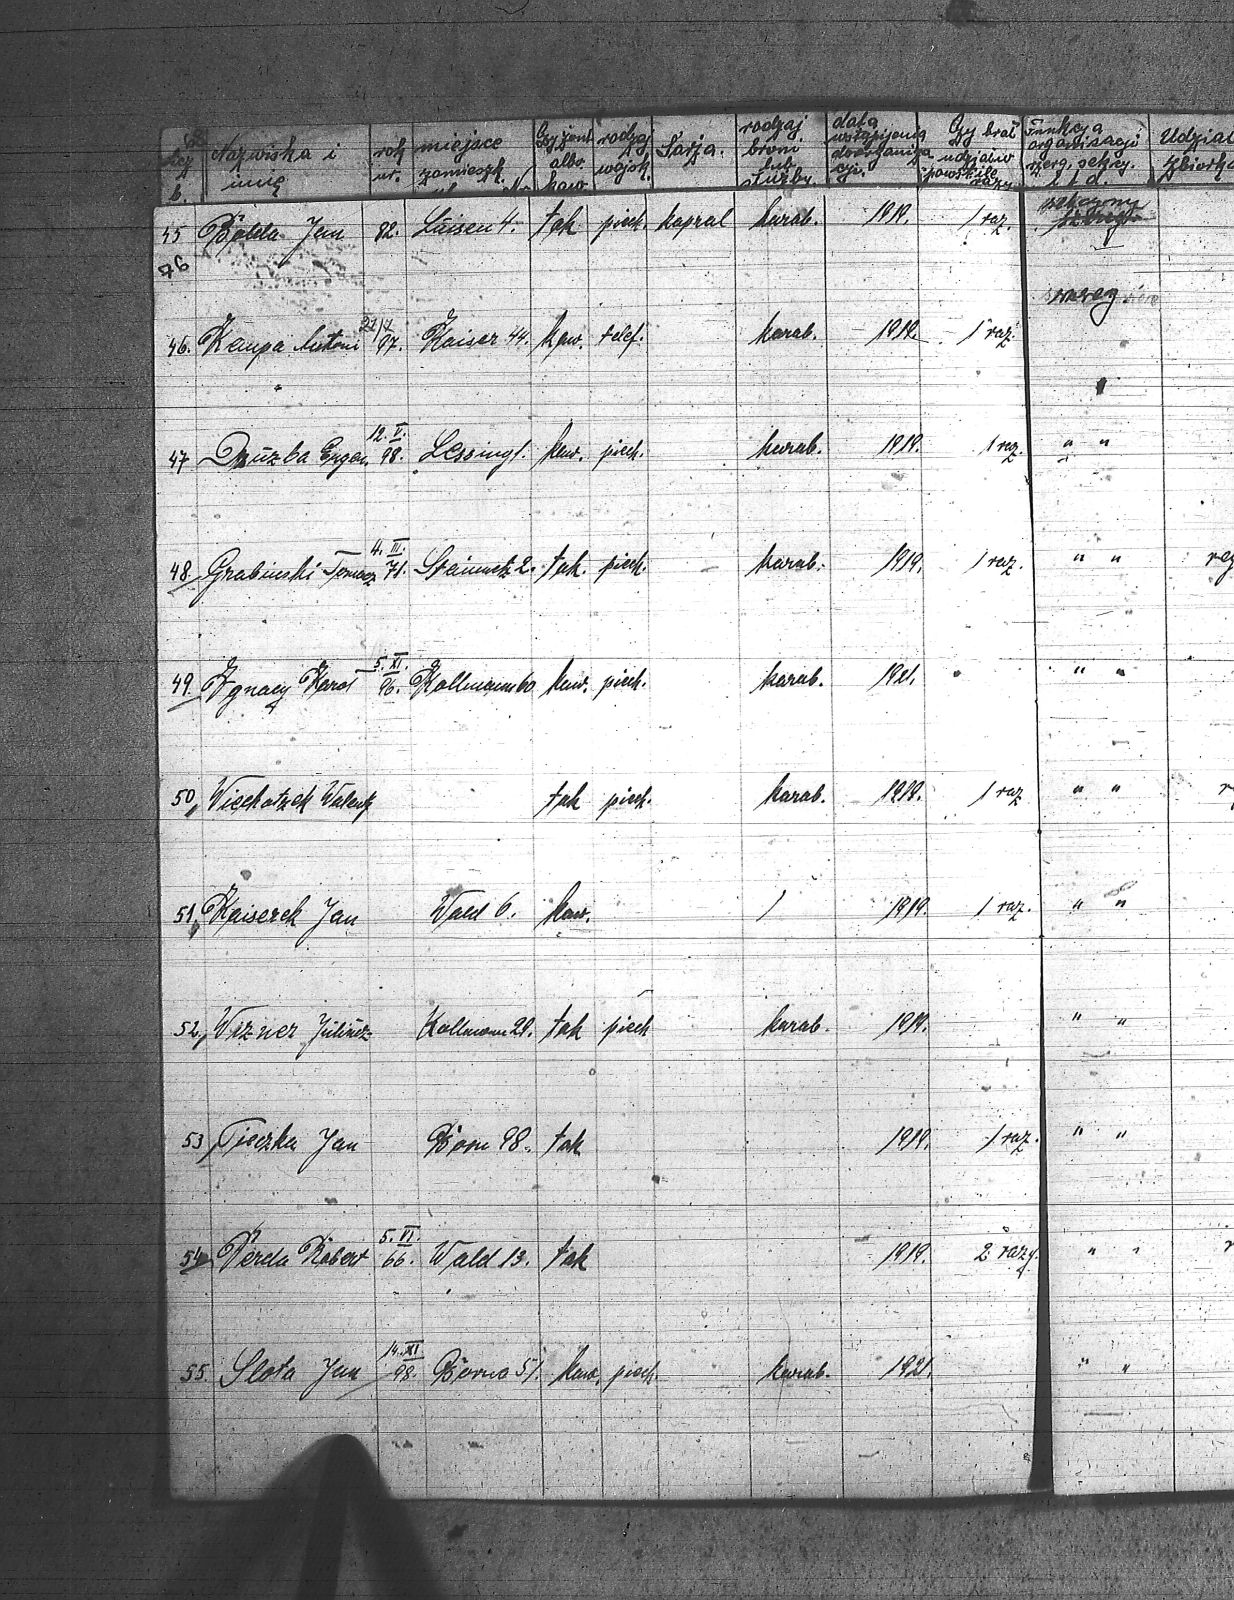 Nazwiska i imię rok ur. miejsce zamieszk. Czy żont. albo kaw. rodzaj wojsk. Sarja. rodzaj broni lub służby. data wstąpienia do organiza cji. Czy brał udział w powst. ile razy Funkcja organisacji szereg, sekrej. i t. d. Udział
45 Jan 82. Luisen 4. tak piech. kapral karab. 1919. 1 raz.
76
szereg
46. Kempa Antoni 27/I 97. Kaiser 44. kaw. telef. karab. 1919. 1 raz.
47 Drużba Eugen. 12. V. 98. Lessing 1. kaw. piech. karab. 1919. 1 raz. " "
48. Grabinski Tomasz 4. III. 71. Steinmetz 2. tak. piech. karab. 1919. 1 raz. " "
49. Ignacy Karol 5. XI. 96. Kallmann 60 kaw. piech. karab. 1921. " "
50, Wiechatzek Walenty tak piech. karab. 1919. 1 raz " "
51, Kaiserek Jan Wald 6. kaw. / 1919. 1 raz. " "
52, Wizner Juliusz Kallmann 29. tak piech karab. 1919. " "
53, Tieczka Jan Born 98. tak 1919. 1 raz. " "
54, Robert 5. VI. 66. Wald 13. tak 1919. 2 razy. " "
55. Slota Jan 14. XI 98. 51. kaw. piech. karab. 1921. " "